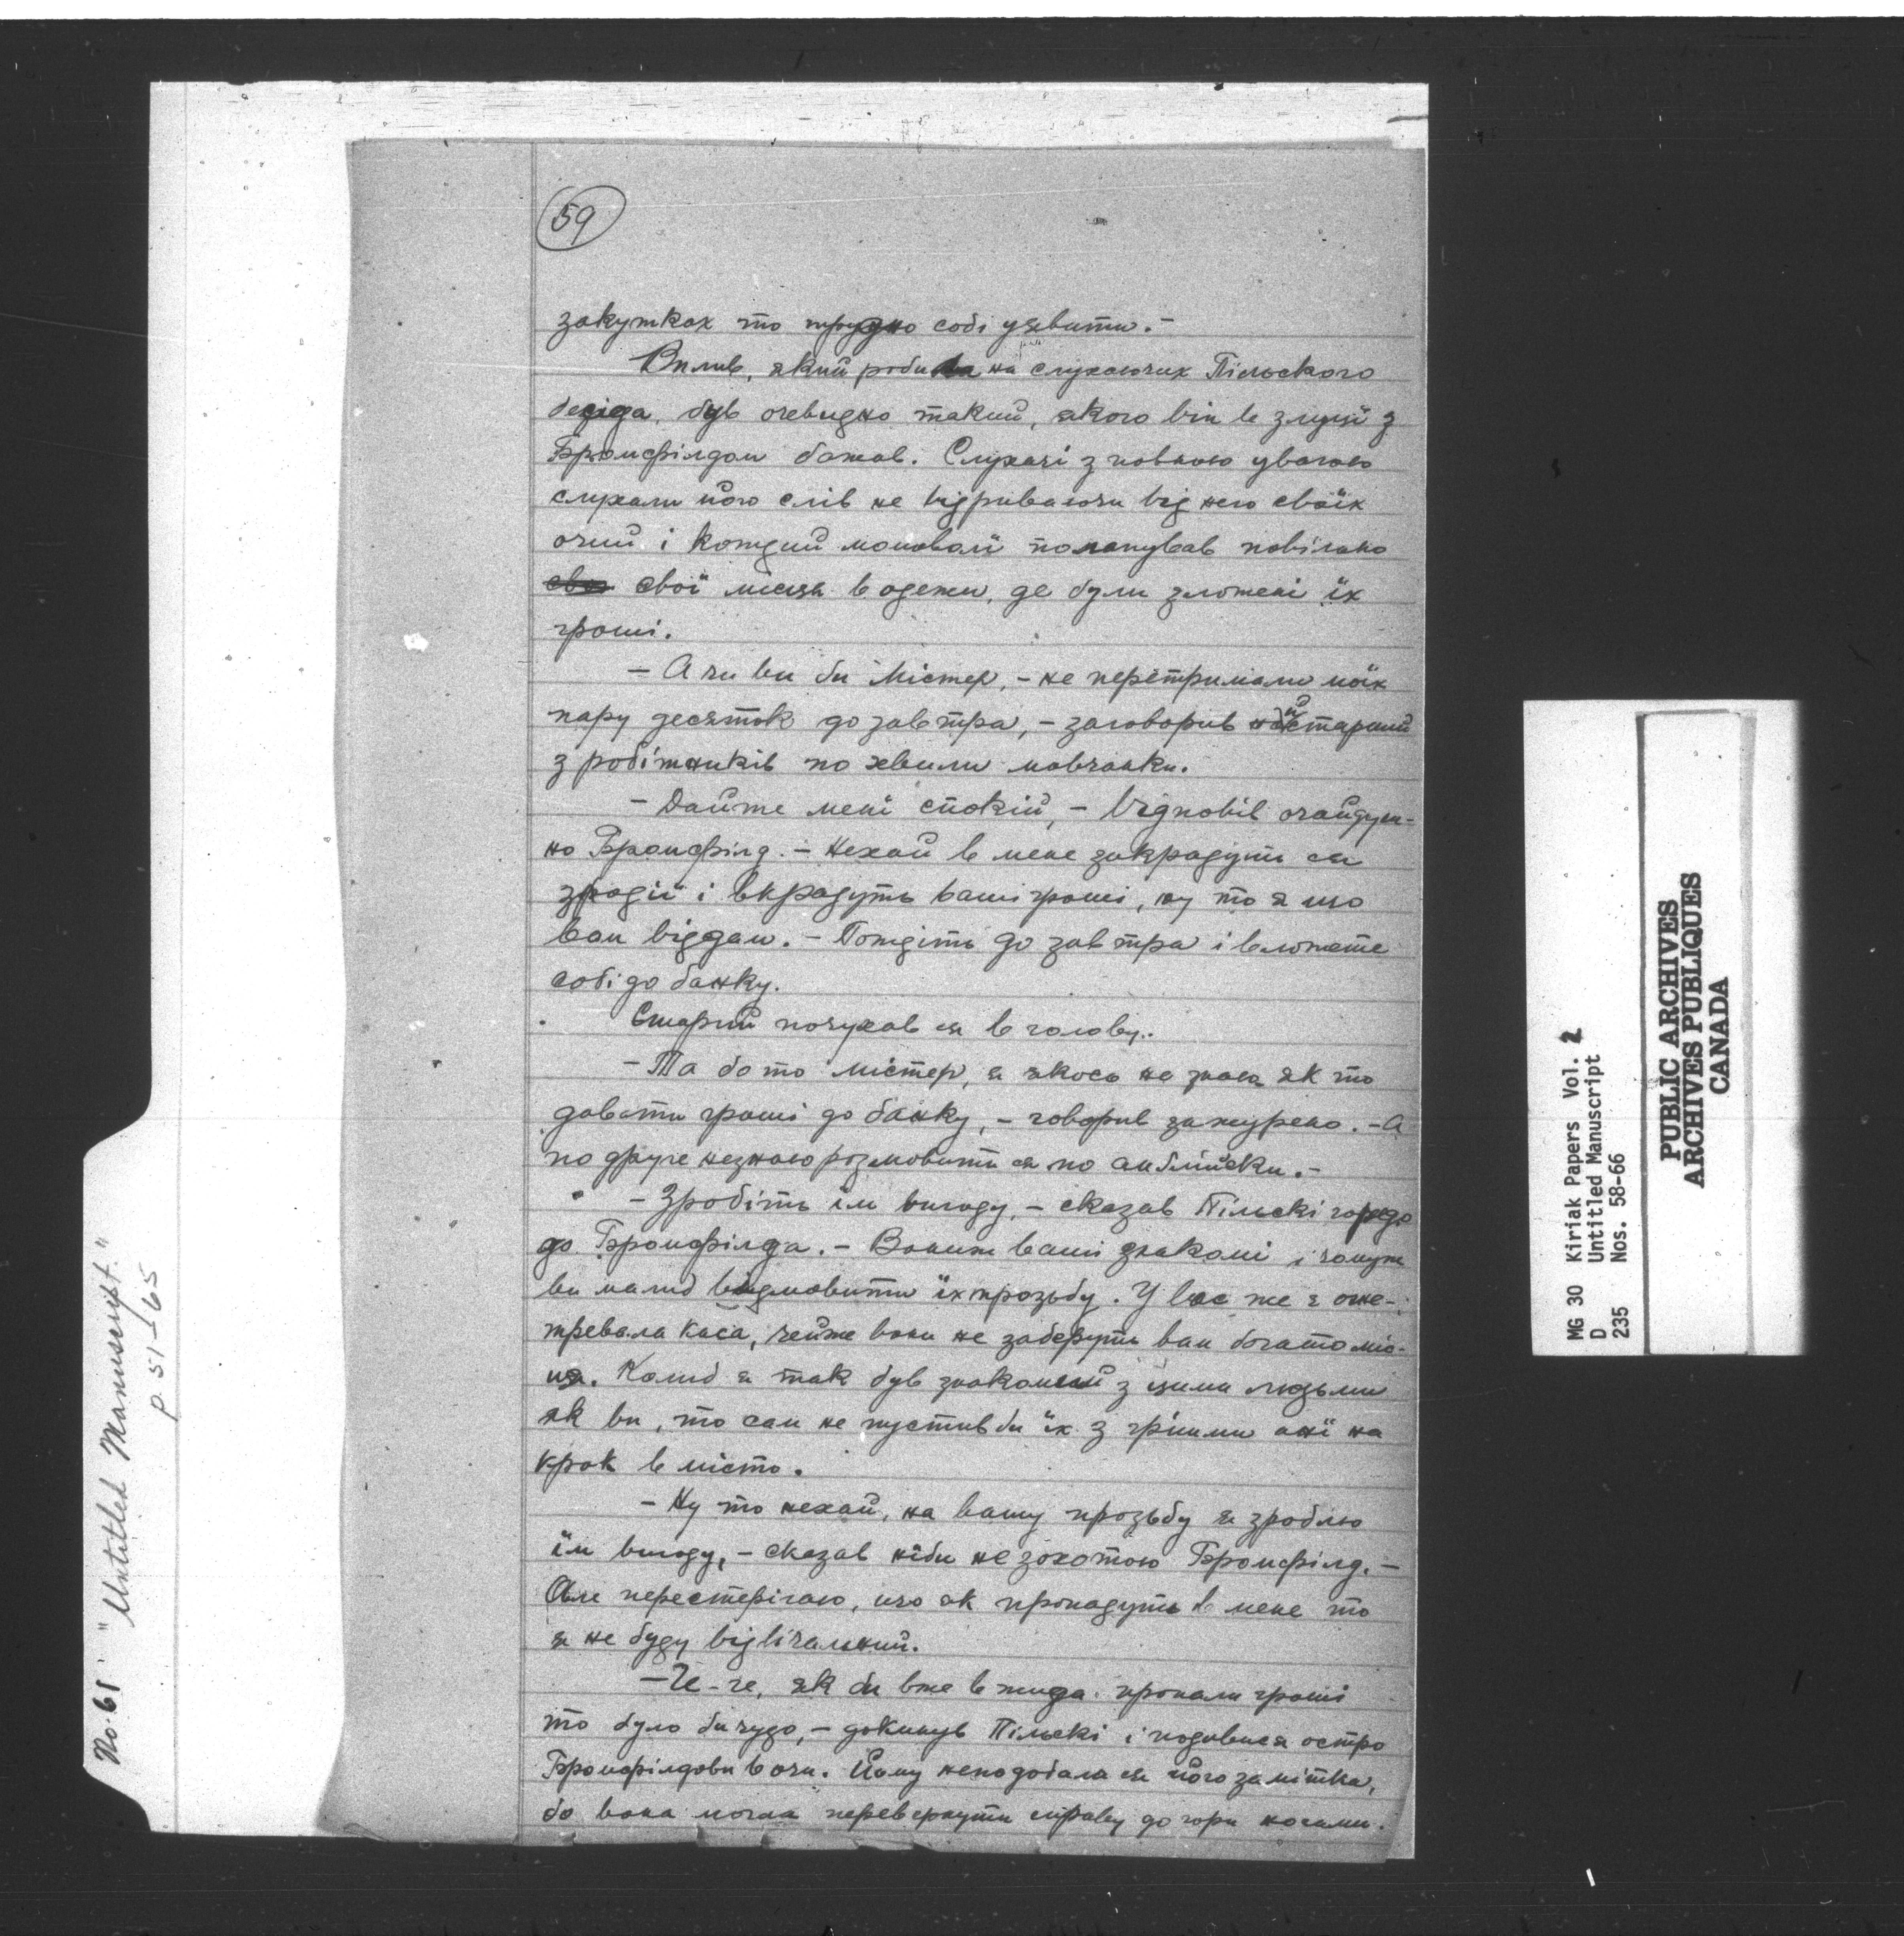 59
закутках то трудно собі уявити.-
Вплив, який робила на слухаючих Пільского
бесіда, був очевидно такий, якого він в злуці з
Бромфілдом бажав. Слухачі з повною увагою
слухали його слів не відриваючи від него своїх
очий і кождий мимоволі полапував повільно
свої місця в одежи, де були зложені їх
гроші.
- А чи ви би Містер, - не перетримали моїх
пару десяток до завтра, - заговорив найстарший
з робітників по хвили мовчанки.
- Дайте мені спокій, - відповів очайдуш-
но Бромфілд. - Нехай в мене закрадуть ся
злодії і вкрадуть ваші гроші, ну то я що
вам віддам. - Пождіть до завтра і вложите
собі до банку.
Старий почухав ся в голову.
- Та бо то містер, я якось не знаю як то
давати гроші до банку, - говорив зажурено. - А
по друге незнаю розмовити ся по англійськи.-
- Зробіть їм вигоду, - сказав Пільскі гордо
до Бромфілда. - Вониж ваші знакомі і чомуж
ви малиб відмовити їх прозьбу. У вас же є огне-
тревала каса, чейже вони не заберуть вам богато міс-
ця. Колиб я так був знакомий з цими людьми
як ви, то сам не пустив би їх з грішми ані на
крок в місто.
- Ну то нехай, на вашу прозьбу я зроблю
їм вигоду, - сказав ніби не з охотою Бромфілд. -
Але перестерігаю, що як пропадуть в мене то
я не буду відвічальний.
- Ге-ге, як би вже в жида пропали гроші
то було би чудо, - докинув Пільскі і подивися остро
Бромфілдови в очи. Йому неподобала ся його замітка,
бо вона могла перевернути справу до гори ногами.
No. 61 "Untitled Manuscript."
p. 51-65
MG 30 Kiriak Papers Vol. 2
D Untitled Manuscript
235 Nos. 58-66
PUBLIC ARCHIVES
ARCHIVES PUBLIQUES
CANADA